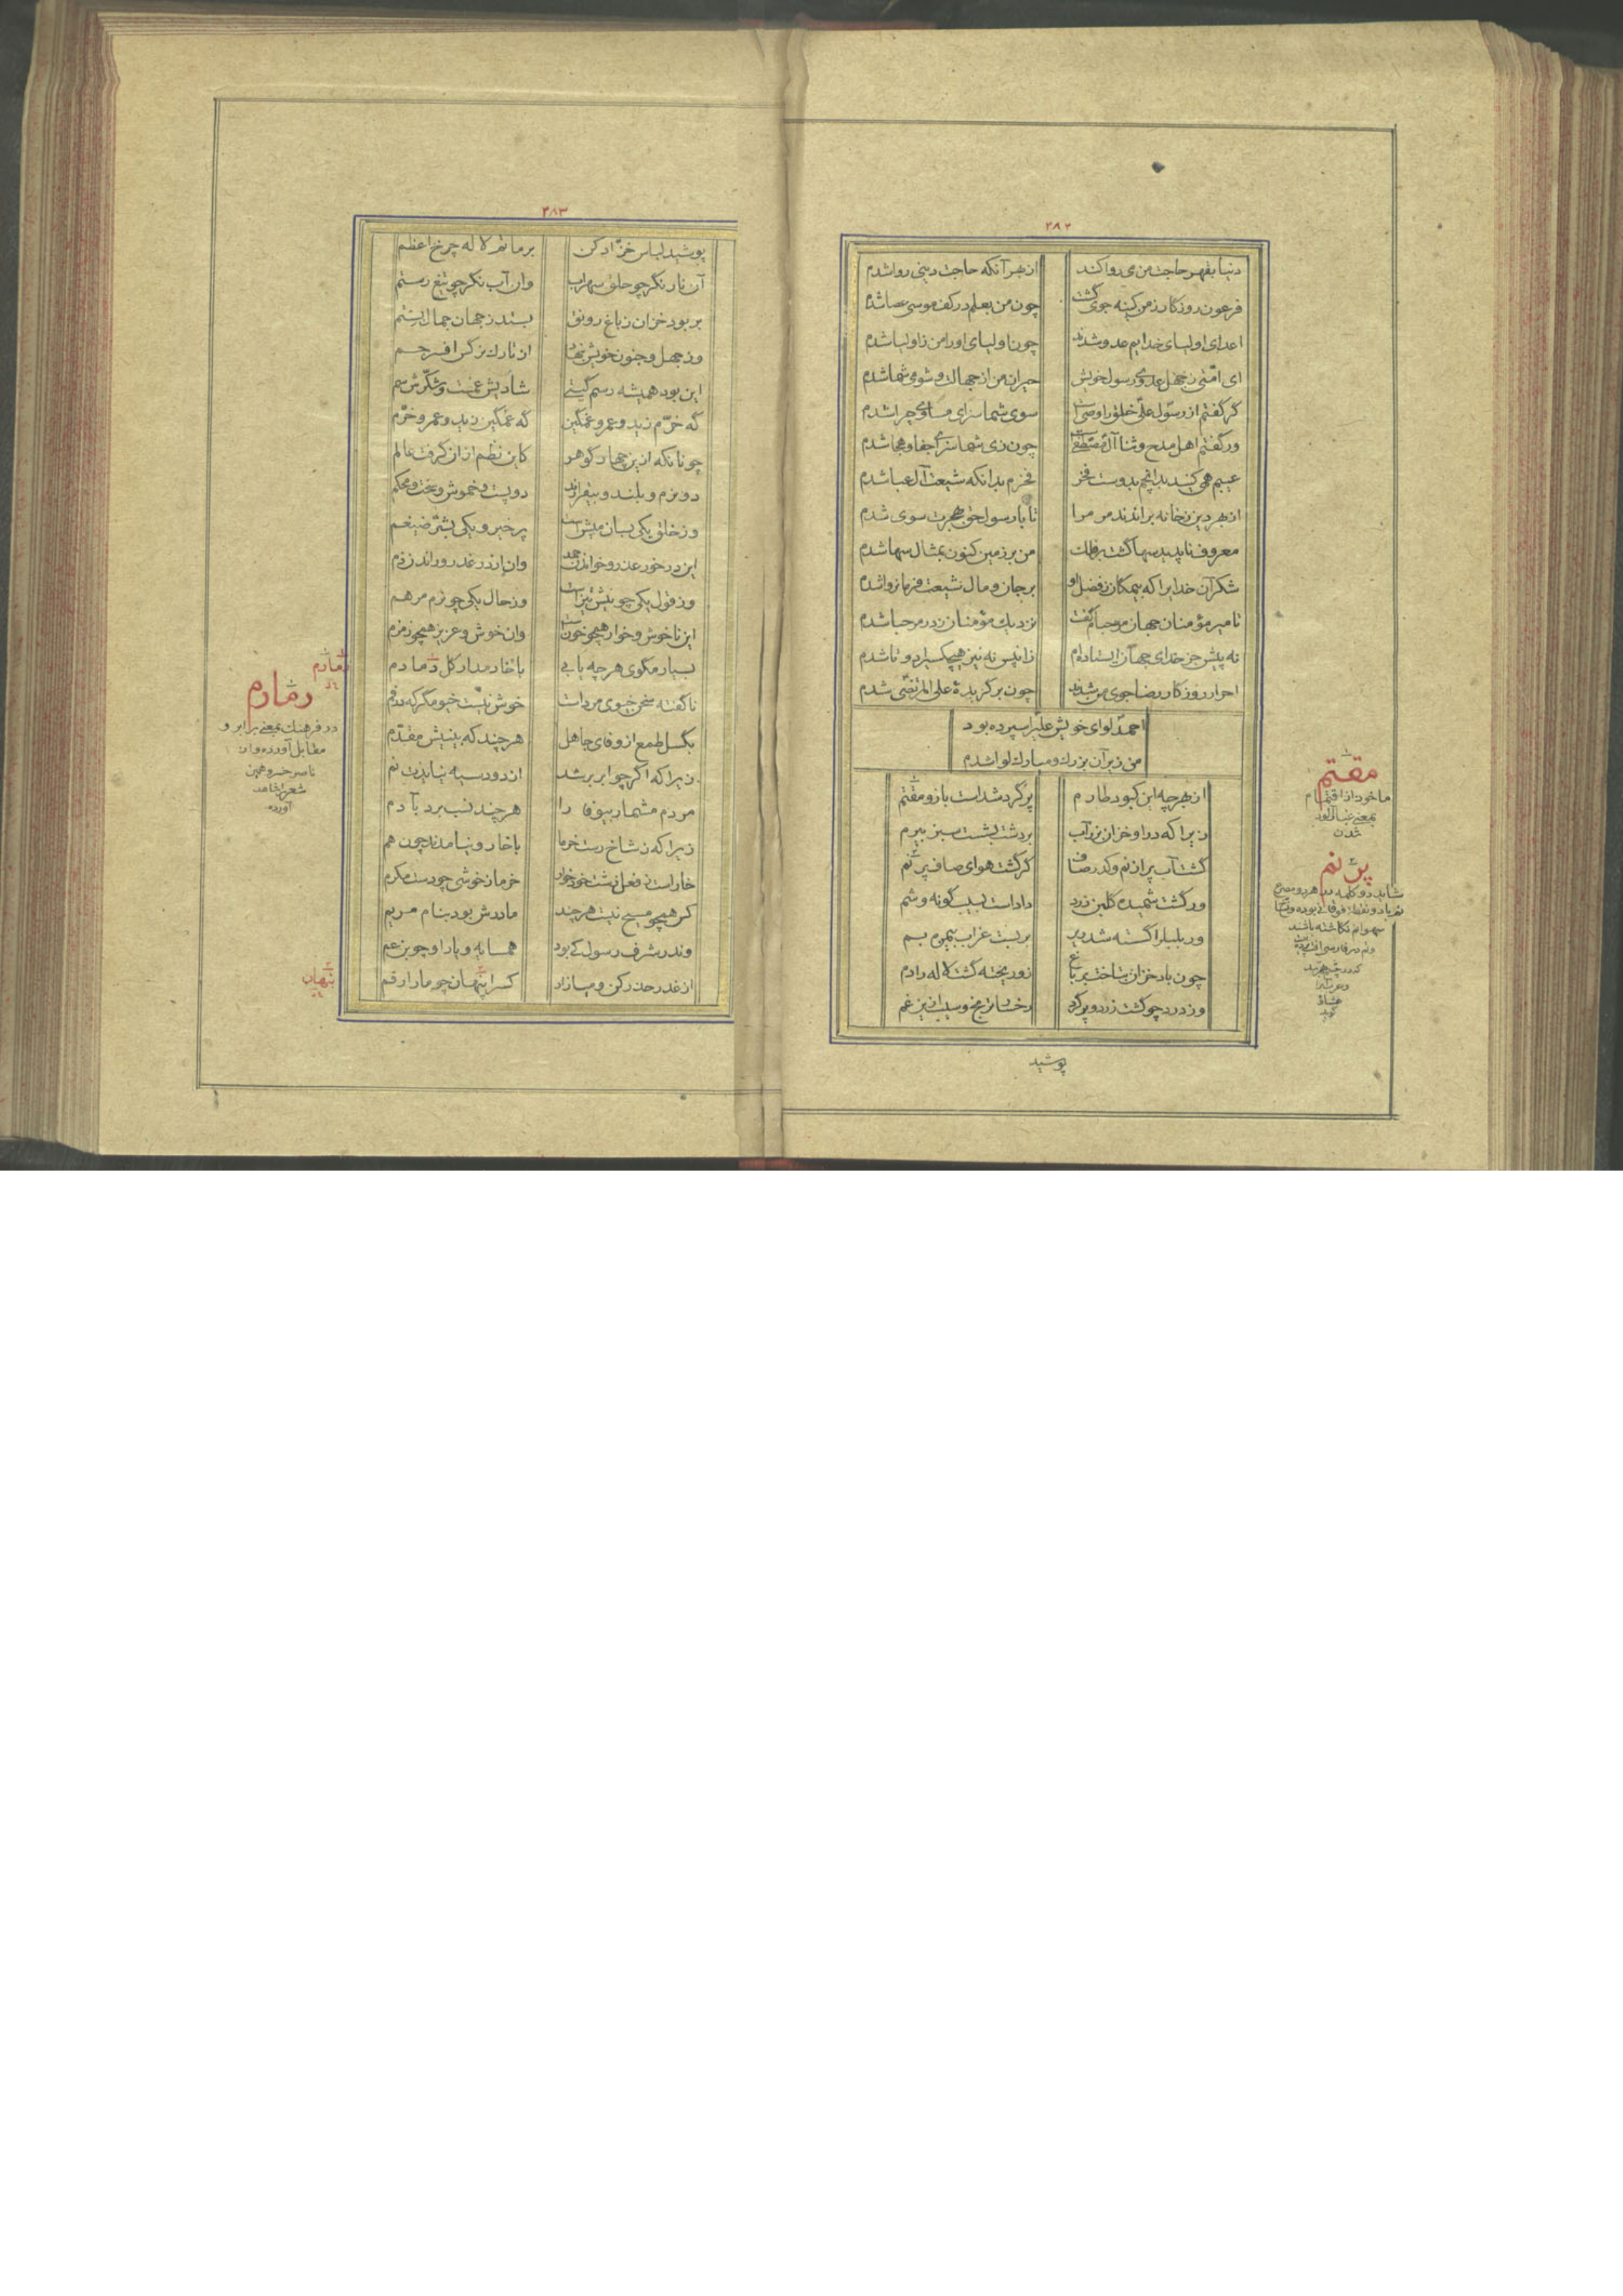 ۲۸۲
دنیا بقهر حاجت من می روا کند از بهر آنکه حاجت دینی روا شدم
فرعون روزکار ز من کینه جوی کشت چون من بعلم در کف موسی عصا شدم
اعدای اولیای خدایم عدو شدند چون اولیای او را من ز اولیا شدم
ای امّتی ز جهل عدوی رسول خویش حیران من از جهالت و شومی شما شدم
کر کفتم از رسول علی خلق را وصی است سوی شما سزای مساوی چرا شدم
ور کفتم اهل مدح و ثنا آل مصطفی است چون زی شما سزای جفا و هجا شدم
عیبم همی کنند بدانچم بدوست فخر فخرم بدانکه شیعت آل عبا شدم
از بهر دین ز خانه براندند مر مرا تا با رسول حق بهجرت سوی شدم
معروف ناپدید سها کشت بر فلک من بر زمین کنون بمثال سها شدم
شکر آن خدایرا که بیمکان ز فضل او بر جان و مال شیعت فرمانروا شدم
تا میر مؤمنان جهان مرحبام کفت نزدیک مؤمنان ز در مرحبا شدم
نه پیش جز خدای جهان ایستاده‌ام زانپس نه نیز هیچکسی را دوتا شدم
احرار روزکار رضا جوی من شدند چون برکزیدهٔ علی المرتضی شدم
احمد لوای خویش علی را سپرده بود
من زیر آن بزرک و مبارک لوا شدم
از بهر چه این کبود طارم پر کرد شد است باز و مقتم
زیرا که در او خزان بزر آب بر دشت بشست سبز بیرم
کشت آب پر از نم و کدر صاف کر کشت هوای صاف پر نم
ور کشت شمیده کلبن زرد داد است بسیب کونه و شم
ور بلبل را کسته شد زیر بر بست غراب بیمزه بم
چون باد خزان بتاخت بر باغ زو ریخته کشت لاله را دم
وز درد چو کشت زرد و پر کرد رخسار ترنج و سیب ازین غم
پوشید
مقتم
ماخوذ از اقتمام
بمعنی غبار آلود
شدن
پر نم
شاید دو کلمه در هر دو مصرع
سهوا نم نکاشته باشند
۲۸۳
پوشید لباس خز ادکن بر ماتم لاله چرخ اعظم
آن نار نکر چو حلق سهراب وان آب نکر چو تیغ رستم
بر بود خزان ز باغ رونق بستد ز جهان جمال بستم
وز جهل و جنون خویش بنهاد از تارک نرکس افسر جم
این بود همیشه رسم کیتی شادیش غمست و شکرش سم
که خرّم زید و عمرو غمکین که غمکین زید و عمرو خرّم
چونانکه ازین چهار کوهر کاین نظم ازان کرفت عالم
دو نرم و بلند و بیقرارند دو پست و خموش و سخت و محکم
وز خلق یکی بسان میش است پر خیر و یکی بشرّ ضیغم
این در خور عذر و خواندن حمد وان از در غدر و راندن ذم
وز قول یکی چو نیش تیز است وز حال یکی چو نرم مرهم
این ناخوش و خوار همچو خون است وان خوش و عزیز همچو زمزم
بسیار مکوی هر چه یابی با خار مدار کل دمادم
ناکفته سخن خیوی مرد است خوش نیست خیو مکر که در فم
بکسل طمع از وفای جاهل هر چند که بینیش مقدّم
زیرا که اکر چو ابر بر شد از دود سیه نیایدت نم
مردم مشمار بیوفا را هر چند نسب برد بآدم
زیرا که ز شاخ رست خرما با خار و نیامدند چون هم
خار است ز فعل زشت خود خوار خرما ز خوشی چو دست مکرم
کس همچو مسیح نیست هر چند مادرش بود بنام مریم
وندر شرف رسول کی بود همسایه و یار او چو بن عم
از غدر حذر کن و میازار کس را پنهان چو مار ارقم
دمادم
دمادم
در فرهنک بمعنی برابر و
مقابل آورده و از
ناصر خسرو همین
شعر را شاهد
آورده
پنهان